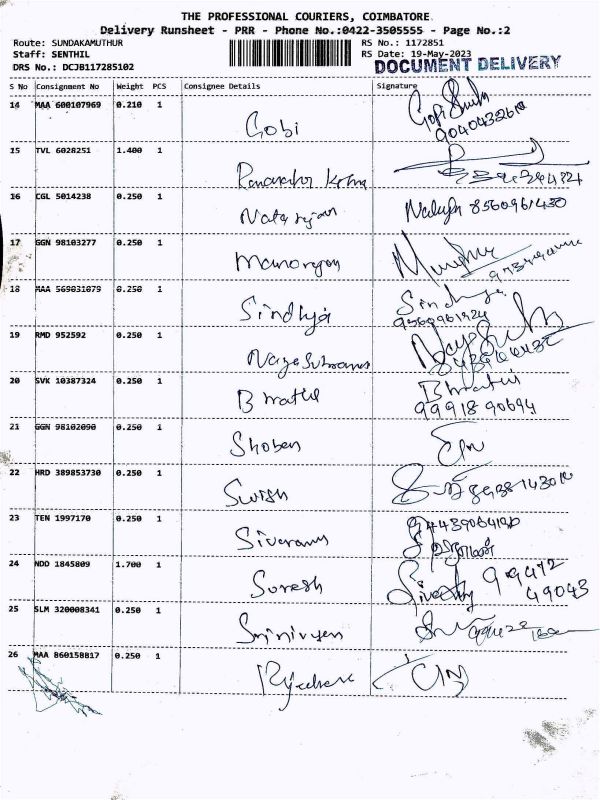 THE PROFESSIONAL COURIERS, COIMBATORE
Delivery Runsheet - PRR - Phone No.:0422-3505555 - Page No.:2
Route: SUNDAKAMUTHUR RS No.: 1172851
Staff: SENTHIL RS Date: 19-May-2023
DRS No.: DCJB117285102 DOCUMENT DELIVERY
S No Consignment No Weight PCS Consignee Details Signature
14 MAA 600107969 0.210 1 Gobi
15 TVL 6028251 1.400 1
16 CGL 5014238 0.250 1 Natarajan 8560961430
17 GGN 98103277 0.250 1 Manorajan
18 MAA 569031079 0.250 1 Sindhya Sindhya
9560961924
19 RMD 952592 0.250 1
20 SVK 10387324 0.250 1 Bharathi
99918 90694
21 GGN 98102090 0.250 1 Shoben
22 HRD 389853730 0.250 1
23 TEN 1997170 0.250 1
24 NDD 1845809 1.700 1 Suresh 99472
49043
25 SLM 320008341 0.250 1
26 MAA 860158817 0.250 1